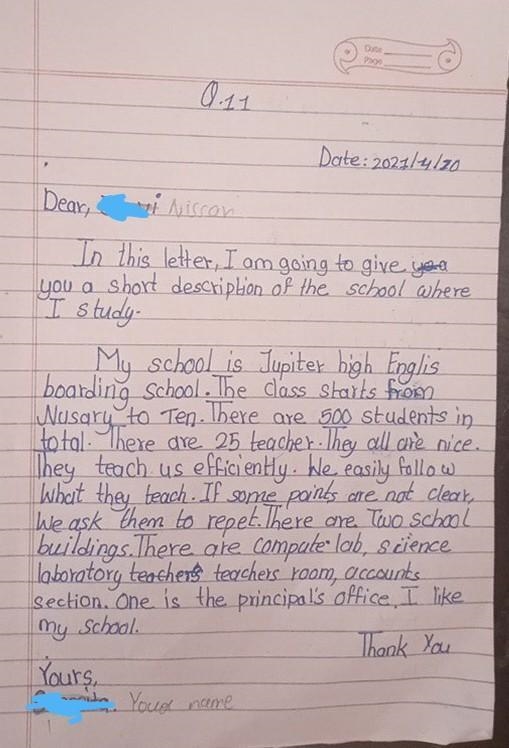 Date
Page
Q.11
Date: 2021/4/20
Dear, Nissan
In this letter, I am going to give yea
you a short description of the school where
I study.
My school is Jupiter high Englis
boarding school. The class starts from
Nusary to Ten. There are 500 students in
total. There are 25 teacher. They all are nice.
They teach us efficiently. We easily follow
What they teach. If some points are not clear,
We ask them to repet. There are Two school
buildings. There are compute lab, science
laboratory teachers teachers room, accounts
section. One is the principal's office, I like
my school.
Thank You
Yours,
Your name